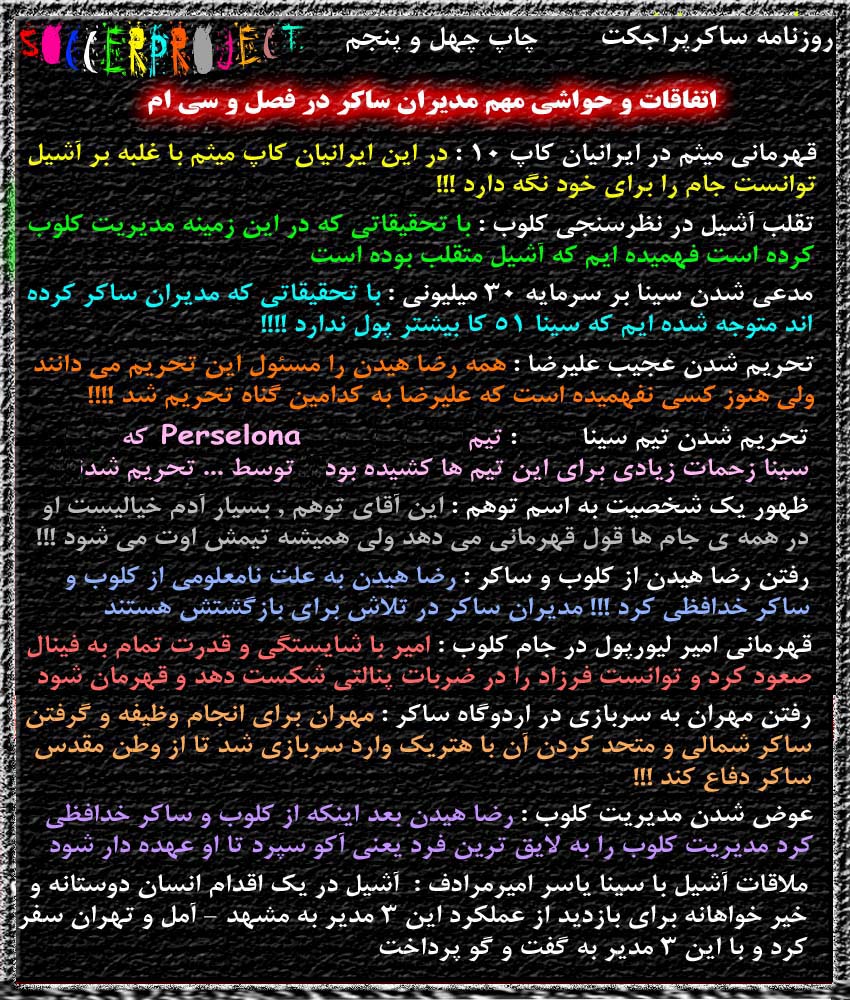 روزنامه ساکرپراجکت چاپ چهل و پنجم SOCCERPROJECT
اتفاقات و حواشی مهم مدیران ساکر در فصل و سی ام
قهرمانی میثم در ایرانیان کاپ ۱۰ : در این ایرانیان کاپ میثم با غلبه بر آشیل
توانست جام را برای خود نگه دارد !!!
تقلب آشیل در نظرسنجی کلوب : با تحقیقاتی که در این زمینه مدیریت کلوب
کرده است فهمیده ایم که آشیل متقلب بوده است
مدعی شدن سینا بر سرمایه ۳۰ میلیونی : با تحقیقاتی که مدیران ساکر کرده
اند متوجه شده ایم که سینا ۵۱ کا بیشتر پول ندارد !!!!
تحریم شدن عجیب علیرضا : همه رضا هیدن را مسئول این تحریم می دانند
ولی هنوز کسی نفهمیده است که علیرضا به کدامین گناه تحریم شد !!!!
تحریم شدن تیم سینا : تیم Perselona که
سینا زحمات زیادی برای این تیم ها کشیده بود توسط ... تحریم شد
ظهور یک شخصیت به اسم توهم : این آقای توهم , بسیار آدم خیالیست او
در همه ی جام ها قول قهرمانی می دهد ولی همیشه تیمش اوت می شود !!!
رفتن رضا هیدن از کلوب و ساکر : رضا هیدن به علت نامعلومی از کلوب و
ساکر خدافظی کرد !!! مدیران ساکر در تلاش برای بازگشتش هستند
قهرمانی امیر لیورپول در جام کلوب : امیر با شایستگی و قدرت تمام به فینال
صعود کرد و توانست فرزاد را در ضربات پنالتی شکست دهد و قهرمان شود
رفتن مهران به سربازی در اردوگاه ساکر : مهران برای انجام وظیفه و گرفتن
ساکر شمالی و متحد کردن آن با هتریک وارد سربازی شد تا از وطن مقدس
ساکر دفاع کند !!!
عوض شدن مدیریت کلوب : رضا هیدن بعد اینکه از کلوب و ساکر خدافظی
کرد مدیریت کلوب را به لایق ترین فرد یعنی آکو سپرد تا او عهده دار شود
ملاقات آشیل با سینا یاسر امیرمرادف : آشیل در یک اقدام انسان دوستانه و
خیر خواهانه برای بازدید از عملکرد این ۳ مدیر به مشهد – آمل و تهران سفر
کرد و با این ۳ مدیر به گفت و گو پرداخت